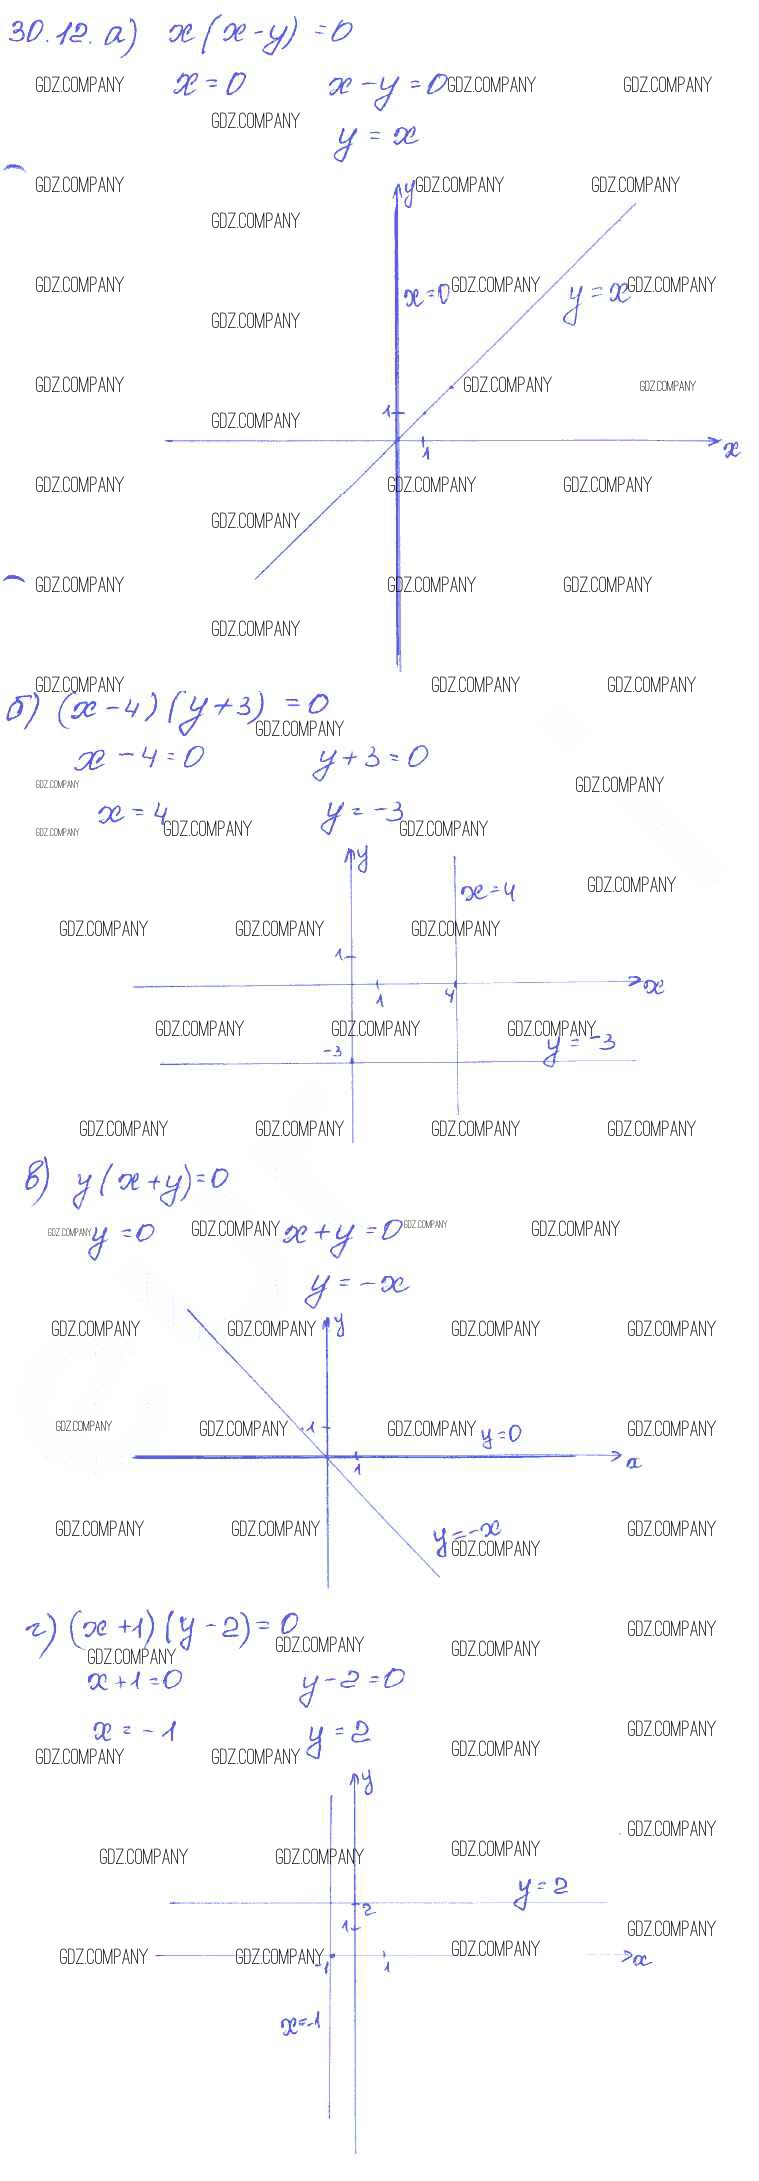 30.12. а) x(x-y)=0
GDZ.COMPANY x=0 x-y=0 GDZ.COMPANY GDZ.COMPANY
GDZ.COMPANY y=x
GDZ.COMPANY y GDZ.COMPANY GDZ.COMPANY
GDZ.COMPANY
GDZ.COMPANY x=0 GDZ.COMPANY y=x GDZ.COMPANY
GDZ.COMPANY
GDZ.COMPANY GDZ.COMPANY GDZ.COMPANY
GDZ.COMPANY 1
1 x
GDZ.COMPANY GDZ.COMPANY GDZ.COMPANY
GDZ.COMPANY
GDZ.COMPANY GDZ.COMPANY GDZ.COMPANY
GDZ.COMPANY
GDZ.COMPANY GDZ.COMPANY GDZ.COMPANY
б) (x-4)(y+3)=0
GDZ.COMPANY
x-4=0 y+3=0
GDZ.COMPANY GDZ.COMPANY
x=4 y=-3
GDZ.COMPANY GDZ.COMPANY GDZ.COMPANY
y
x=4 GDZ.COMPANY
GDZ.COMPANY GDZ.COMPANY GDZ.COMPANY
1
1 4 x
GDZ.COMPANY GDZ.COMPANY GDZ.COMPANY
-3 y=-3
GDZ.COMPANY GDZ.COMPANY GDZ.COMPANY GDZ.COMPANY
в) y(x+y)=0
GDZ.COMPANY y=0 GDZ.COMPANY x+y=0 GDZ.COMPANY GDZ.COMPANY
y=-x
GDZ.COMPANY GDZ.COMPANY y GDZ.COMPANY GDZ.COMPANY
GDZ.COMPANY GDZ.COMPANY 1 GDZ.COMPANY y=0 GDZ.COMPANY
1 x
GDZ.COMPANY GDZ.COMPANY y=-x GDZ.COMPANY GDZ.COMPANY
г) (x+1)(y-2)=0 GDZ.COMPANY
GDZ.COMPANY GDZ.COMPANY GDZ.COMPANY
x+1=0 y-2=0
x=-1 y=2 GDZ.COMPANY
GDZ.COMPANY GDZ.COMPANY GDZ.COMPANY
y
GDZ.COMPANY
GDZ.COMPANY GDZ.COMPANY GDZ.COMPANY
y=2
2
1 GDZ.COMPANY
GDZ.COMPANY GDZ.COMPANY GDZ.COMPANY
-1 1 x
x=-1